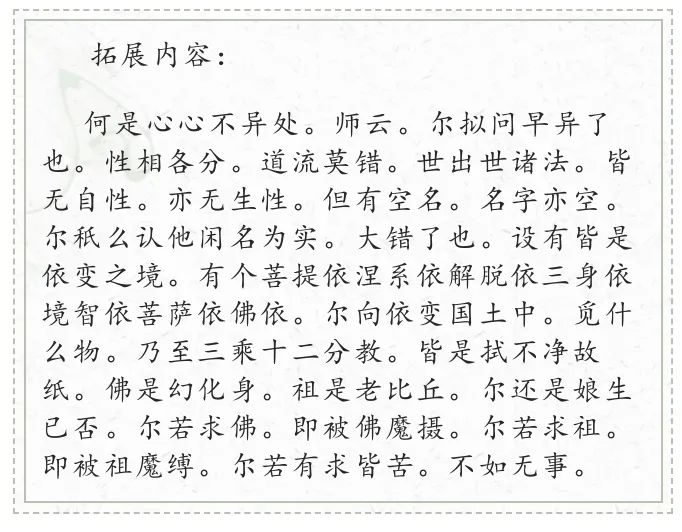 拓展内容：
何是心心不异处。师云。尔拟问早异了
也。性相各分。道流莫错。世出世诸法。皆
无自性。亦无生性。但有空名。名字亦空。
尔秖么认他闲名为实。大错了也。设有皆是
依变之境。有个菩提依涅系依解脱依三身依
境智依菩萨依佛依。尔向依变国土中。觅什
么物。乃至三乘十二分教。皆是拭不净故
纸。佛是幻化身。祖是老比丘。尔还是娘生
已否。尔若求佛。即被佛魔摄。尔若求祖。
即被祖魔缚。尔若有求皆苦。不如无事。